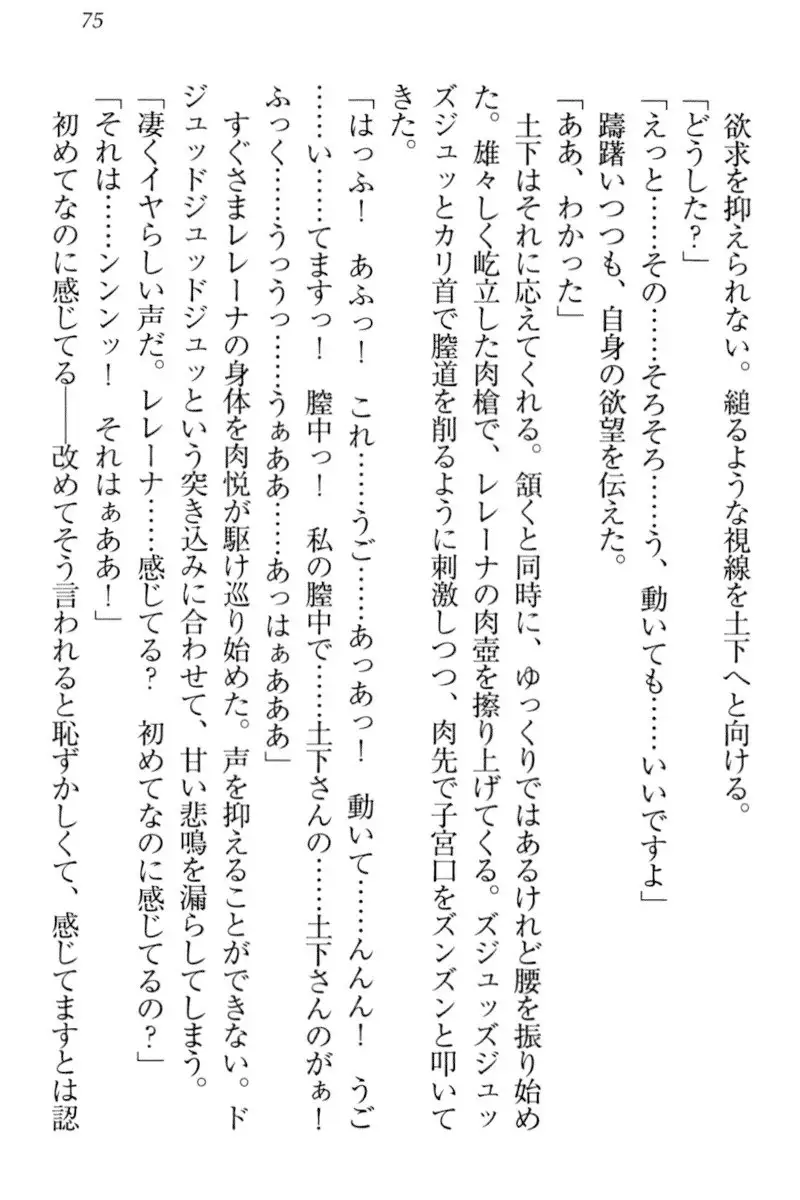 75
欲求を抑えられない。縋るような視線を土下へと向ける。
「どうした?」
「えっと……その……そろそろ……う、動いても……いいですよ」
躊躇いつつも、自身の欲望を伝えた。
「ああ、わかった」
土下はそれに応えてくれる。頷くと同時に、ゆっくりではあるけれど腰を振り始め
た。雄々しく屹立した肉槍で、レレーナの肉壺を擦り上げてくる。ズジュッズジュッ
ズジュッとカリ首で膣道を削るように刺激しつつ、肉先で子宮口をズンズンと叩いて
きた。
「はっふ! あふっ! これ……うご……あっあっ! 動いて……んんん! うご
……い……てますっ! 膣中っ! 私の膣中で……土下さんの……土下さんのがぁ!
ふっく……うっうっ……うぁああ……あっはぁあああ」
すぐさまレレーナの身体を肉悦が駆け巡り始めた。声を抑えることができない。ド
ジュッドジュッドジュッという突き込みに合わせて、甘い悲鳴を漏らしてしまう。
「凄くイヤらしい声だ。レレーナ……感じてる? 初めてなのに感じてるの?」
「それは……ンンンッ! それはぁああ!」
初めてなのに感じてる――改めてそう言われると恥ずかしくて、感じてますとは認